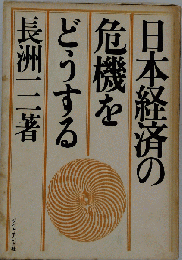 日本経済の
危機を
どうする
長洲一二著